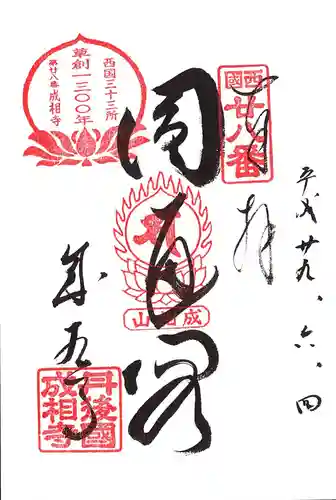 西国
廿八番
奉拝
平成廿九、六、四
西国三十三所
草創一三〇〇年
第廿八番 成相寺
圓通閣
成相山
成相寺
丹後國
成相寺